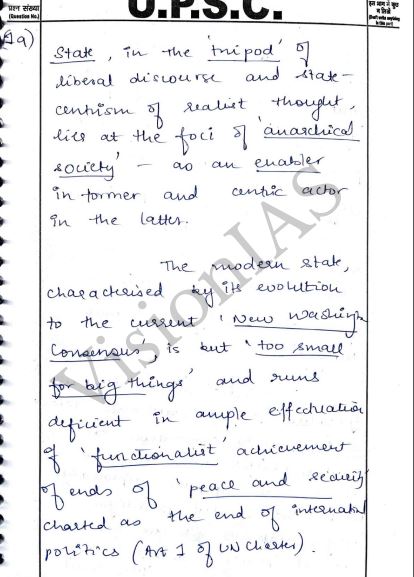 प्रश्न संख्या
(Question No.)
U.P.S.C.
इस भाग में कुछ
न लिखें
(Don't write anything
in this part)
1a)
State, in the 'tripod' of
liberal discourse and state-
centrism of realist thought,
lies at the foci of 'anarchical
society' – as an enabler
in former and centric actor
in the latter.
The modern state,
characterised by its evolution
to the current 'New Washington
Consensus', is but 'too small
for big things' and runs
deficient in ample effectuation
of 'functionalist' achievement
of ends of 'peace and security'
charted as the end of international
politics (Art 1 of UN Charter).
VisionIAS